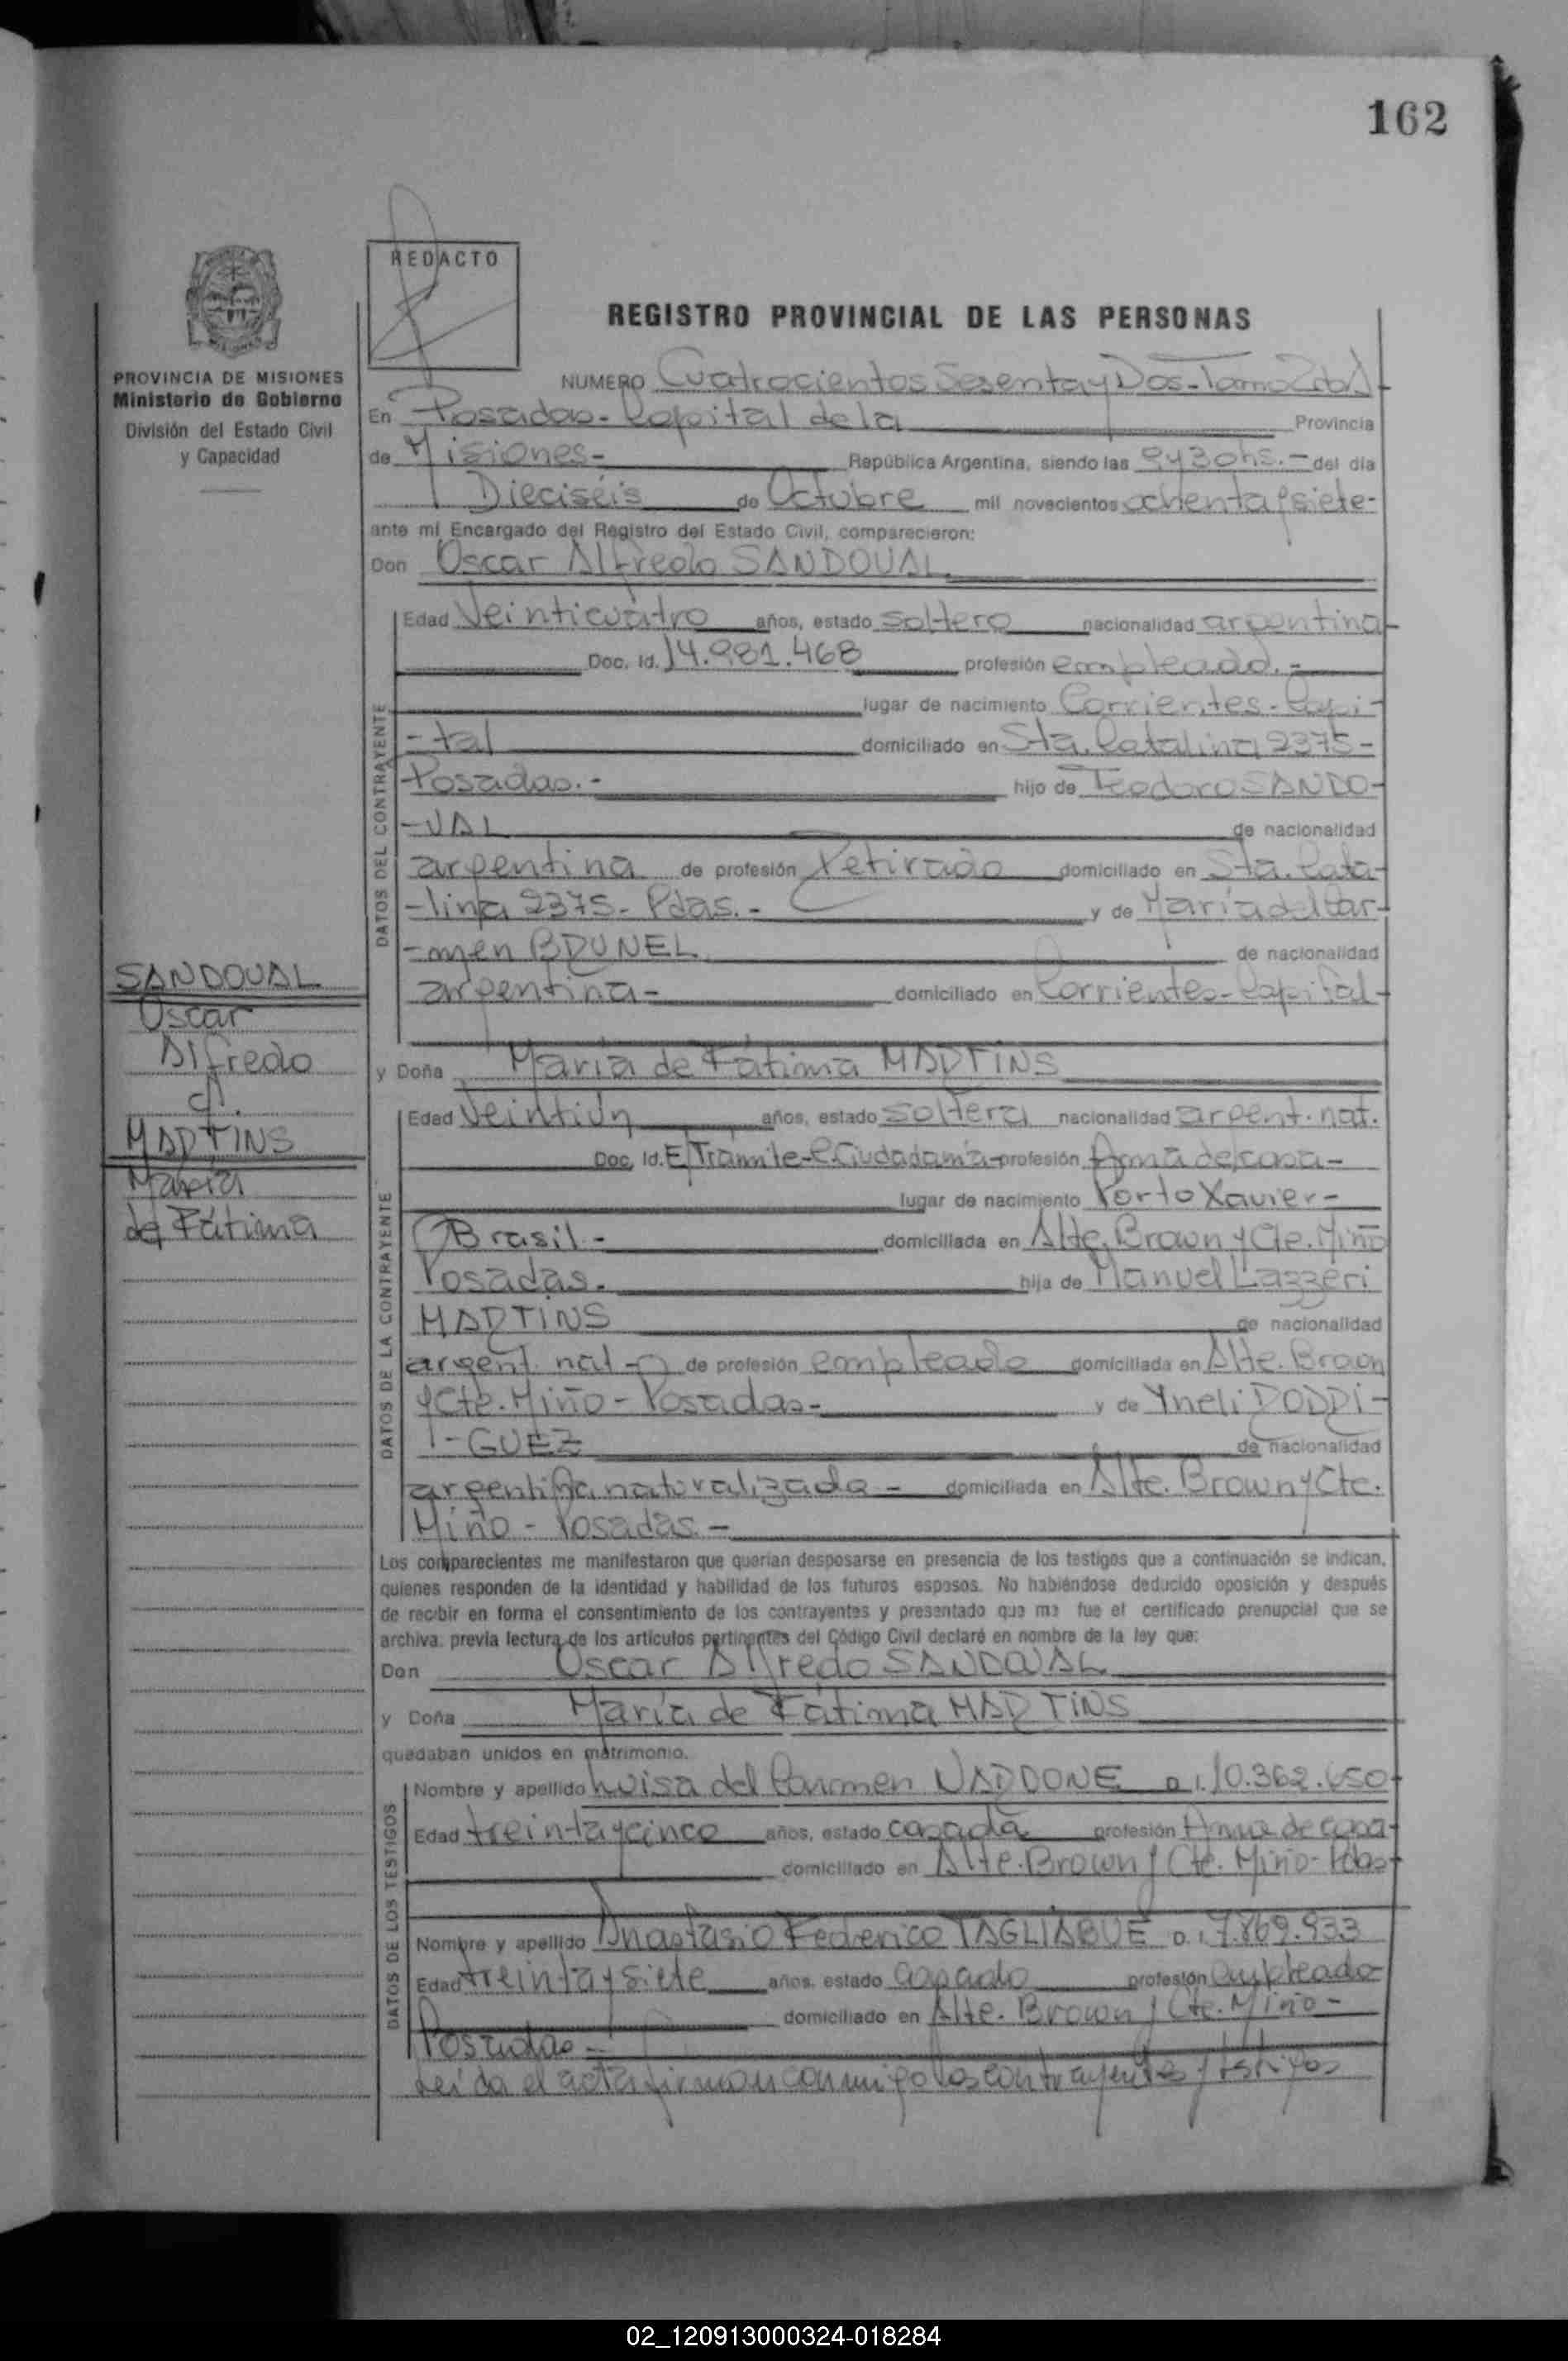 162
REDACTO
REGISTRO PROVINCIAL DE LAS PERSONAS
PROVINCIA DE MISIONES
Ministerio de Gobierno
División del Estado Civil
y Capacidad
NUMERO Cuatrocientos Sesenta y Dos - Tomo 2do
En Posadas - Capital de la Provincia
de Misiones - República Argentina, siendo las 9 y 30 hs. - del día
Dieciséis de Octubre mil novecientos ochenta y siete -
ante mí, Encargado del Registro del Estado Civil, comparecieron:
Don Oscar Alfredo SANDOVAL
DATOS DEL CONTRAYENTE
Edad Veinticuatro años, estado soltero nacionalidad argentina
Doc. Id. 14.981.468 profesión empleado. -
lugar de nacimiento Corrientes - Capi-
- tal domiciliado en Sta. Catalina 2375 -
Posadas. - hijo de Teodoro SANDO-
- VAL de nacionalidad
argentina de profesión Retirado domiciliado en Sta. Cata-
- lina 2375 - Pdas. - y de María del Car-
- men BRUNEL de nacionalidad
argentina - domiciliado en Corrientes - Capital -
SANDOVAL
Oscar
Alfredo
c/.
MARTINS
María
de Fátima
y Doña María de Fátima MARTINS
DATOS DE LA CONTRAYENTE
Edad Veintiún años, estado soltera nacionalidad argent. nat.
Doc. Id. E/Trámite - C. Ciudadanía - profesión Ama de casa -
lugar de nacimiento Porto Xavier -
Brasil - domiciliada en Alte. Brown y Cte. Miño
Posadas. - hija de Manuel Lazzeri
MARTINS de nacionalidad
argent. nat - de profesión empleado domiciliada en Alte. Brown
y Cte. Miño - Posadas - y de Yneli RODRI-
- GUEZ de nacionalidad
argentina naturalizada - domiciliada en Alte. Brown y Cte.
Miño - Posadas. -
Los comparecientes me manifestaron que querían desposarse en presencia de los testigos que a continuación se indican,
quienes responden de la identidad y habilidad de los futuros esposos. No habiéndose deducido oposición y después
de recibir en forma el consentimiento de los contrayentes y presentado que me fue el certificado prenupcial que se
archiva, previa lectura de los artículos pertinentes del Código Civil declaré en nombre de la ley que:
Don Oscar Alfredo SANDOVAL
y Doña María de Fátima MARTINS
quedaban unidos en matrimonio.
DATOS DE LOS TESTIGOS
Nombre y apellido Luisa del Carmen NARDONE D.I. 10.362.650
Edad treinta y cinco años, estado casada profesión Ama de casa
domiciliado en Alte. Brown y Cte. Miño - Pdas
Nombre y apellido Anastasio Federico TAGLIABUE D.I. 7.869.933
Edad treinta y siete años, estado casado profesión empleado
domiciliado en Alte. Brown y Cte. Miño -
Posadas -
Leída el acta firman conmigo los contrayentes y testigos
02_120913000324-018284